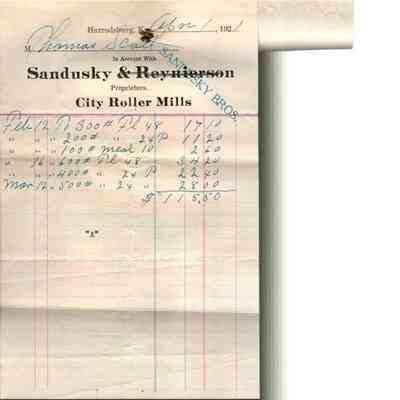 Harrodsburg, K Apr 1, 1921
M Thomas Scott
In Account With
Sandusky & Reynierson
SANDUSKY BROS.
Proprietors.
City Roller Mills
Feb 12 To 300# Fl 48 17 10
" " " 200# " 24 P 11 20
" " " 100# meal 10 2 60
" 26 " 600# Fl 48 34 20
" " " 400# " 24 P 22 40
Mar 12 " 500# " 24 " 28 00
$ 115.50
"A"